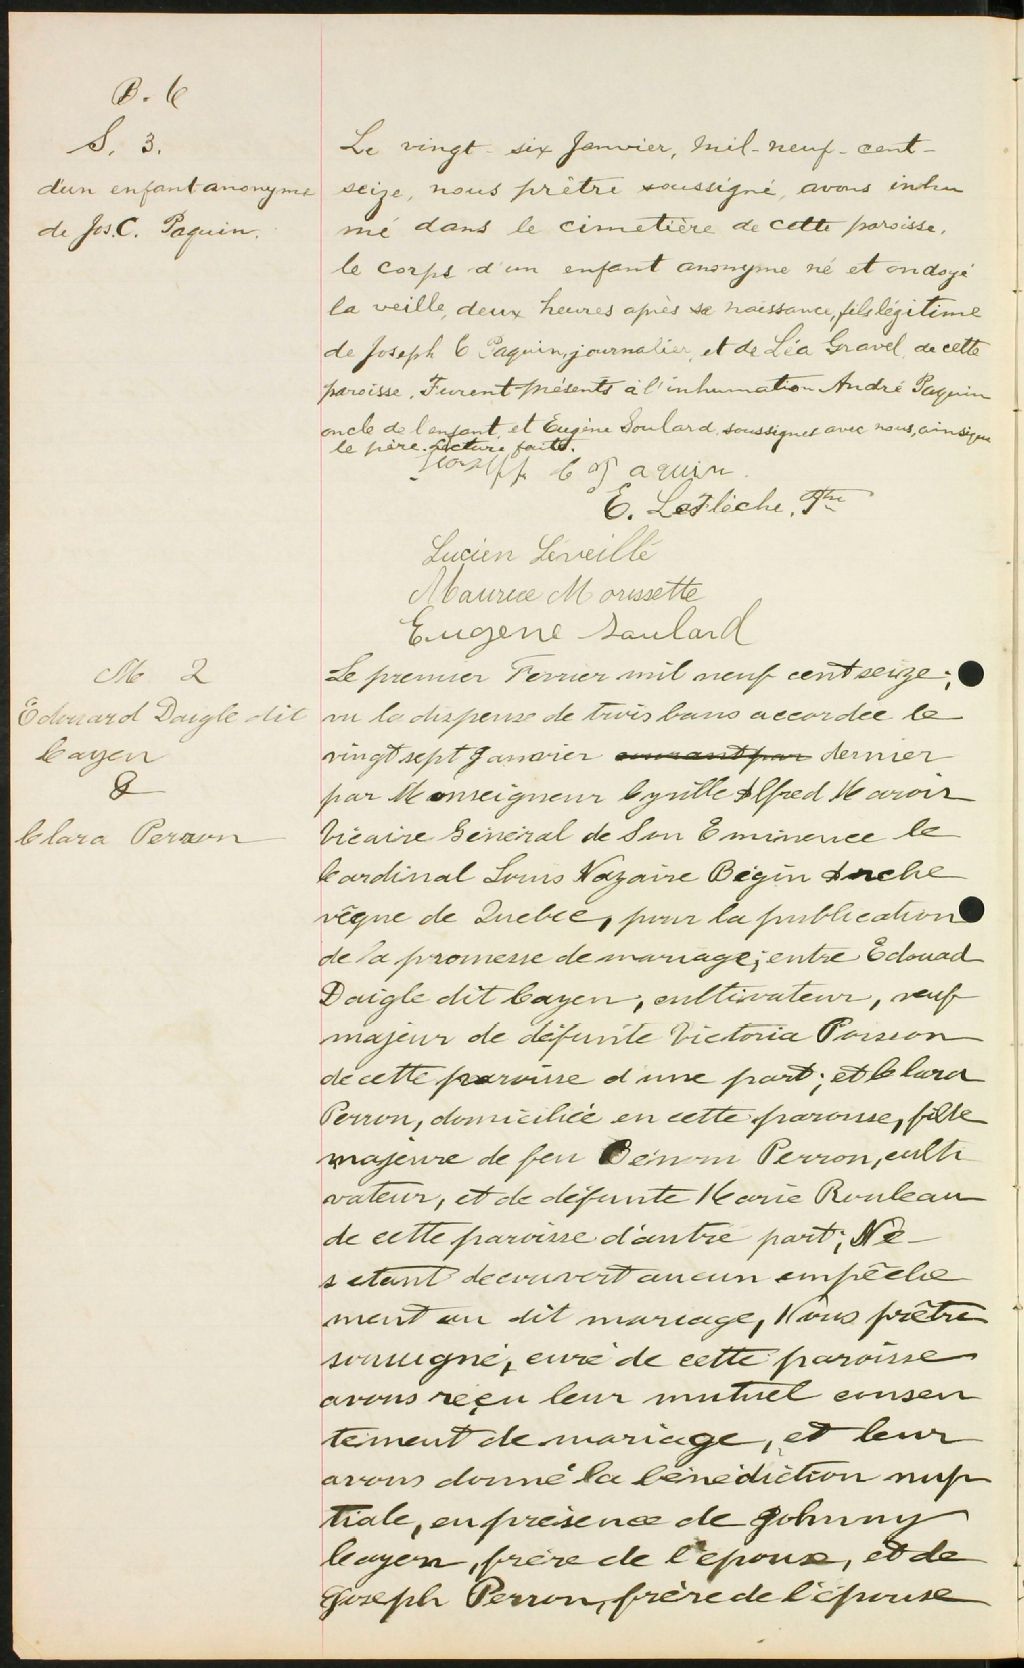 B. 6
S. 3.
d'un enfant anonyme
de Jos. C. Paquin.
Le vingt-six Janvier, mil-neuf-cent-
seize, nous prêtre soussigné, avons inhu
mé dans le cimetière de cette paroisse,
le corps d'un enfant anonyme né et ondoyé
la veille, deux heures après sa naissance, fils légitime
de Joseph C Paquin, journalier, et de Léa Gravel, de cette
paroisse. Furent présents à l'inhumation André Paquin
oncle de l'enfant, et Eugène Soulard, soussignés avec nous, ainsi que
le père. Lecture faite.
Joseph C Paquin.
E. LaFlèche, Ptre
Lucien Léveillé
Maurice Morissette
Eugene Soulard
M 2
Edouard Daigle dit
Cayen
&
Clara Perron
Le premier Fevrier mil neuf cent seize;
vu la dispense de trois bans accordée le
vingt sept Janvier courant par dernier
par Monseigneur Cyrille Alfred Marois
Vicaire Général de Son Eminence le
Cardinal Louis Nazaire Bégin Arche
vêque de Quebec, pour la publication
de la promesse de mariage; entre Edouad
Daigle dit Cayen, cultivateur, veuf
majeur de défunte Victoria Poisson
de cette paroisse d'une part; et Clara
Perron, domiciliée en cette paroisse, fille
majeure de feu Bénoni Perron, culti
vateur, et de défunte Marie Rouleau
de cette paroisse d'autre part; Ne
s'etant decouvert aucun empêche
ment au dit mariage, Nous prêtre
soussigné, curé de cette paroisse
avons reçu leur mutuel consen
tement de mariage, et leur
avons donné la bénédiction nup
tiale, en présence de Johnny
Cayen, frère de l'epoux, et de
Joseph Perron, frère de l'épouse